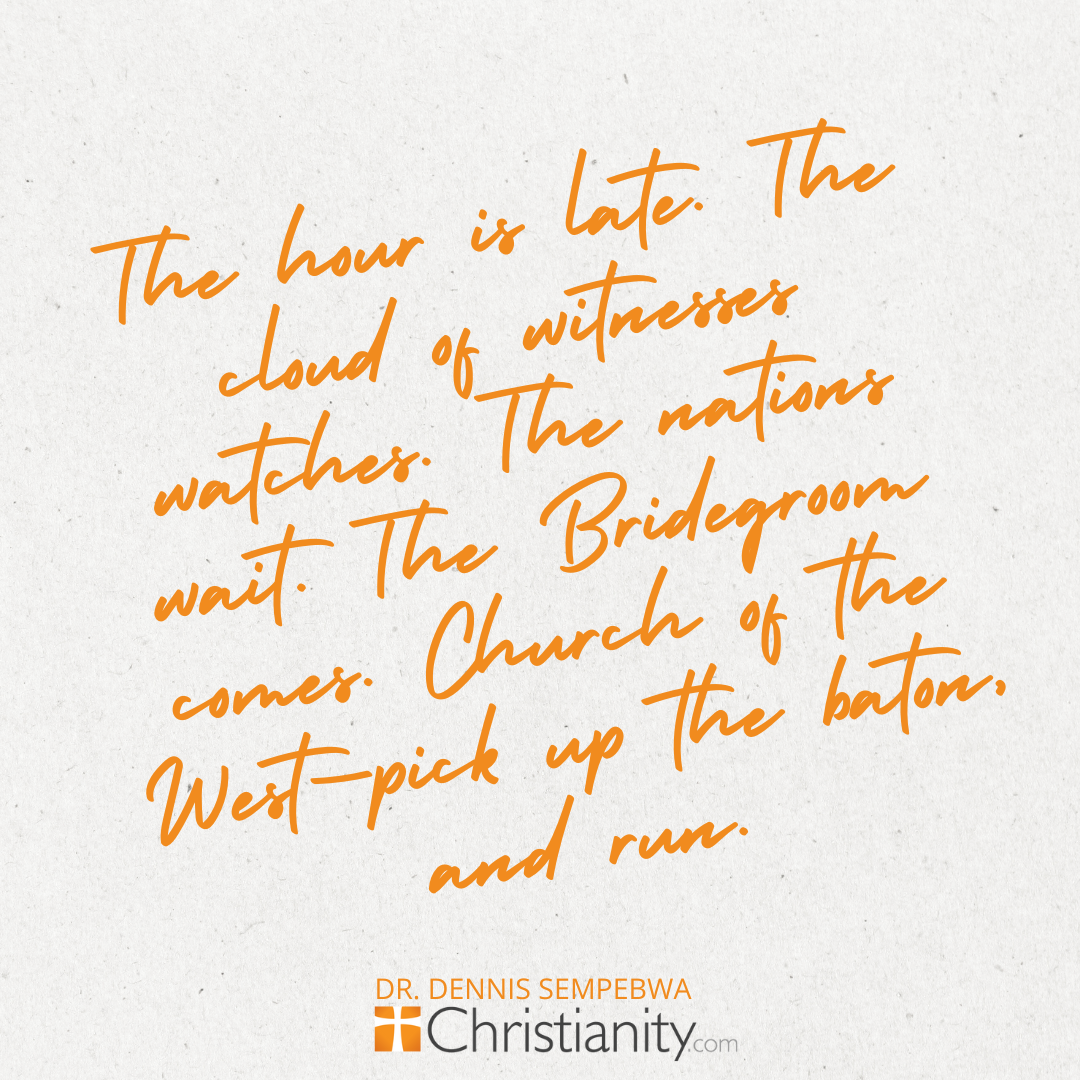 The hour is late. The
cloud of witnesses
watches. The nations
wait. The Bridegroom
comes. Church of the
West—pick up the baton,
and run.
DR. DENNIS SEMPEBWA
Christianity.com